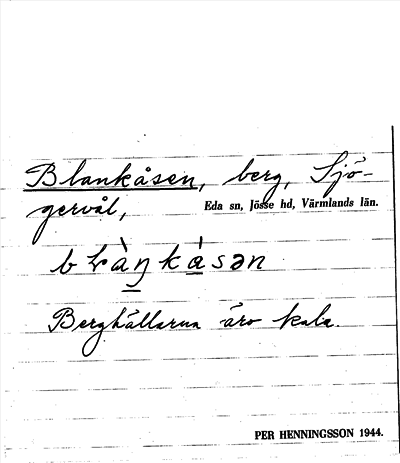 Blankåsen, berg, Sjö-
gervål, Eda sn, Jösse hd, Värmlands län.
Berghällarna äro kala.
PER HENNINGSSON 1944.